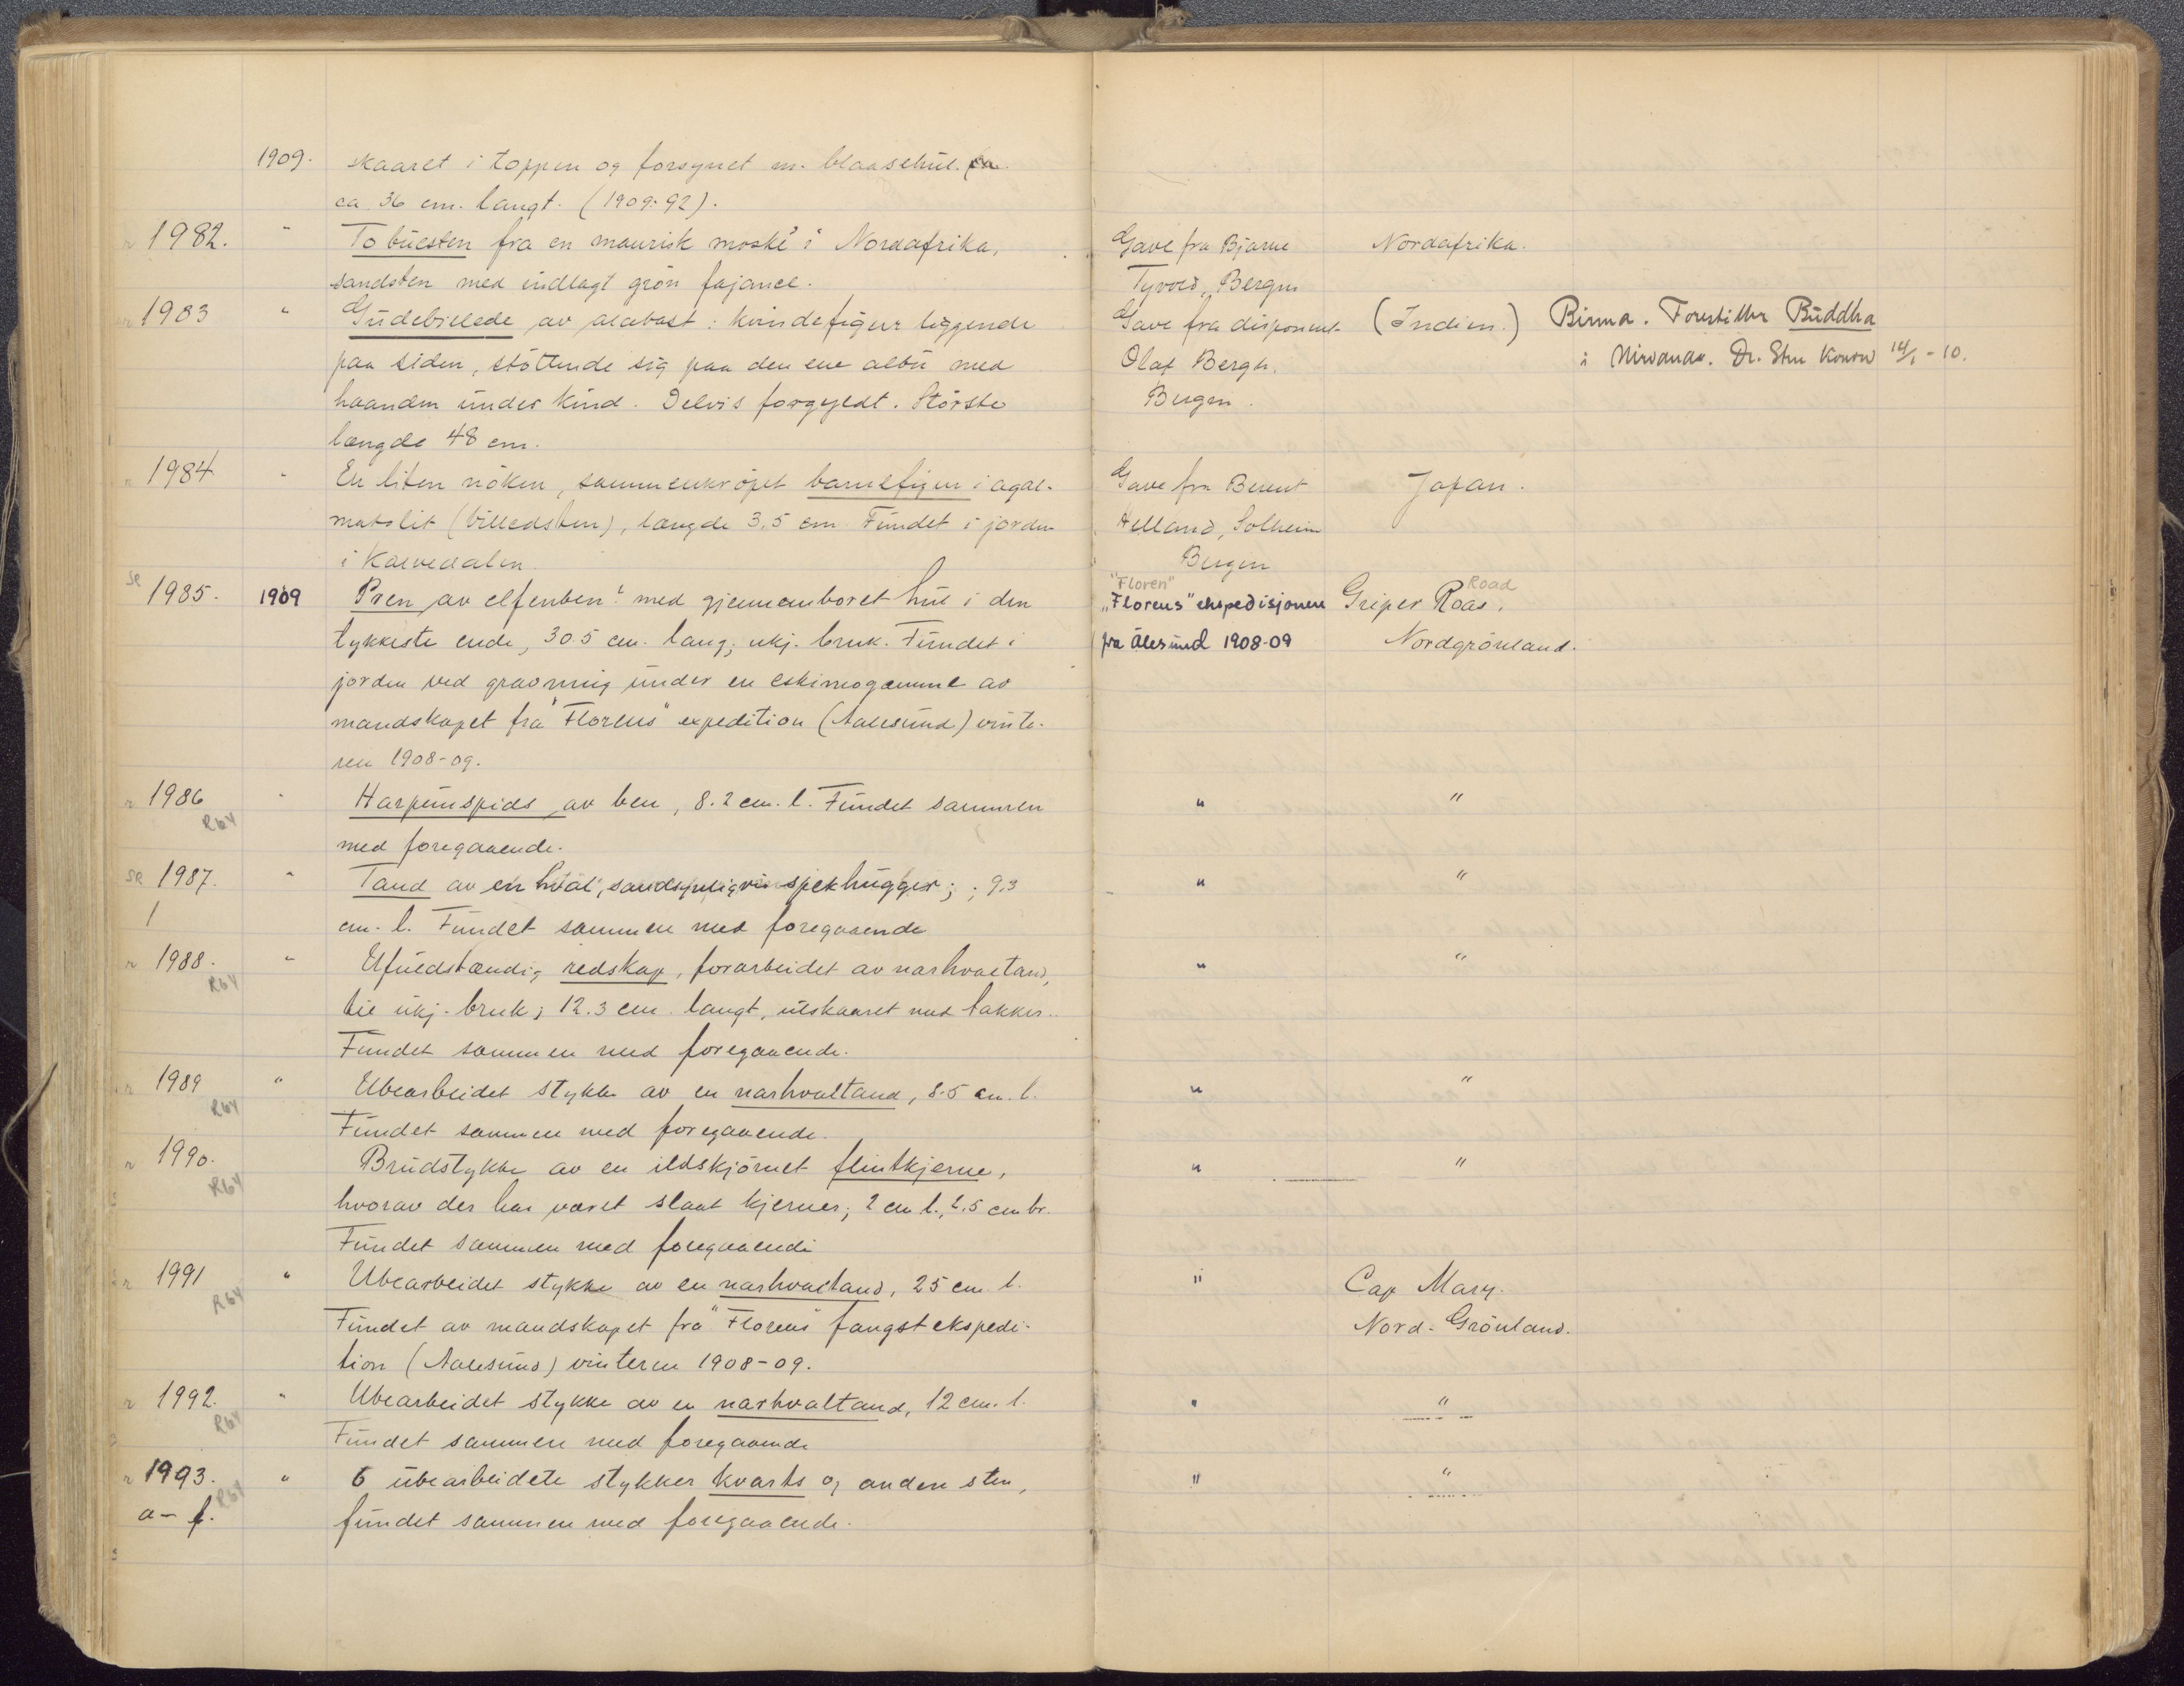 1909. skaaret i toppen og forsynet m. blaasehul.
ca 36 cm. langt. (1909:92).
1982. " To buesten fra en maurisk moské i Nordafrika, Gave fra Bjarne Nordafrika.
sandsten med indlagt grön fajance. Bergen
1983 " Gudebillede av alabast: kvindefigur liggende Gave fra disponent (Indien.) Birma. Forestiller Buddha
paa siden, stöttende sig paa den ene albu med Olaf Bergh, i Nirvana. Dr. Sten Konow 14/1-10.
haanden under kind. Delvis forgyldt. Störste Bergen.
længde 48 cm.
1984 " En liten nöken, sammenkröpet barnefigur i agal- Gave fra Berent Japan.
matolit (billedsten), længde 3,5 cm. Fundet i jorden Helland, Solheim
i Kalvedalen. Bergen
se "Floren" Road
1985. 1909 Pren av elfenben? med gjennemboret hul i den "Florens" ekspedisjonen Griper Roas.
tykkeste ende, 30.5 cm. lang; ukj. bruk. Fundet i fra Ålesund 1908-09 Nordgrönland.
jorden ved gravning under en eskimogamme av
mandskapet fra "Florens" expedition (Aalesund) vinte-
ren 1908-09.
1986 " Harpunspids av ben, 8.2 cm. l. Fundet sammen " "
R64
med foregaaende.
se 1987. " Tand av en hval, sandsynligvis spekhugger; ; 9,3 " "
1 cm. l. Fundet sammen med foregaaende
1988. " Ufuldstændig redskap, forarbeidet av narhvaltand, " "
R64
til ukj. bruk; 12.3 cm. langt, utskaaret med takker.
Fundet sammen med foregaaende.
1989 " Ubearbeidet stykke av en narhvaltand, 8.5 cm. l. " "
R64
Fundet sammen med foregaaende.
1990. Brudstykke av en ildskjörnet flintkjerne, " "
R64
hvorav der har været slaat kjerner; 2 cm l., 2.5 cm br.
Fundet sammen med foregaaende
1991 " Ubearbeidet stykke av en narhvaltand, 25 cm. l. " Cap Mary.
R64
Fundet av mandskapet fra "Florens" fangstekspedi- Nord-Grönland.
tion (Aalesund) vinteren 1908-09.
1992. " Ubearbeidet stykke av en narhvaltand, 12 cm. l. " "
R64
Fundet sammen med foregaaende
1993. " 6 ubearbeidete stykker kvarts og anden sten, " "
R64
a-f. fundet sammen med foregaaende.